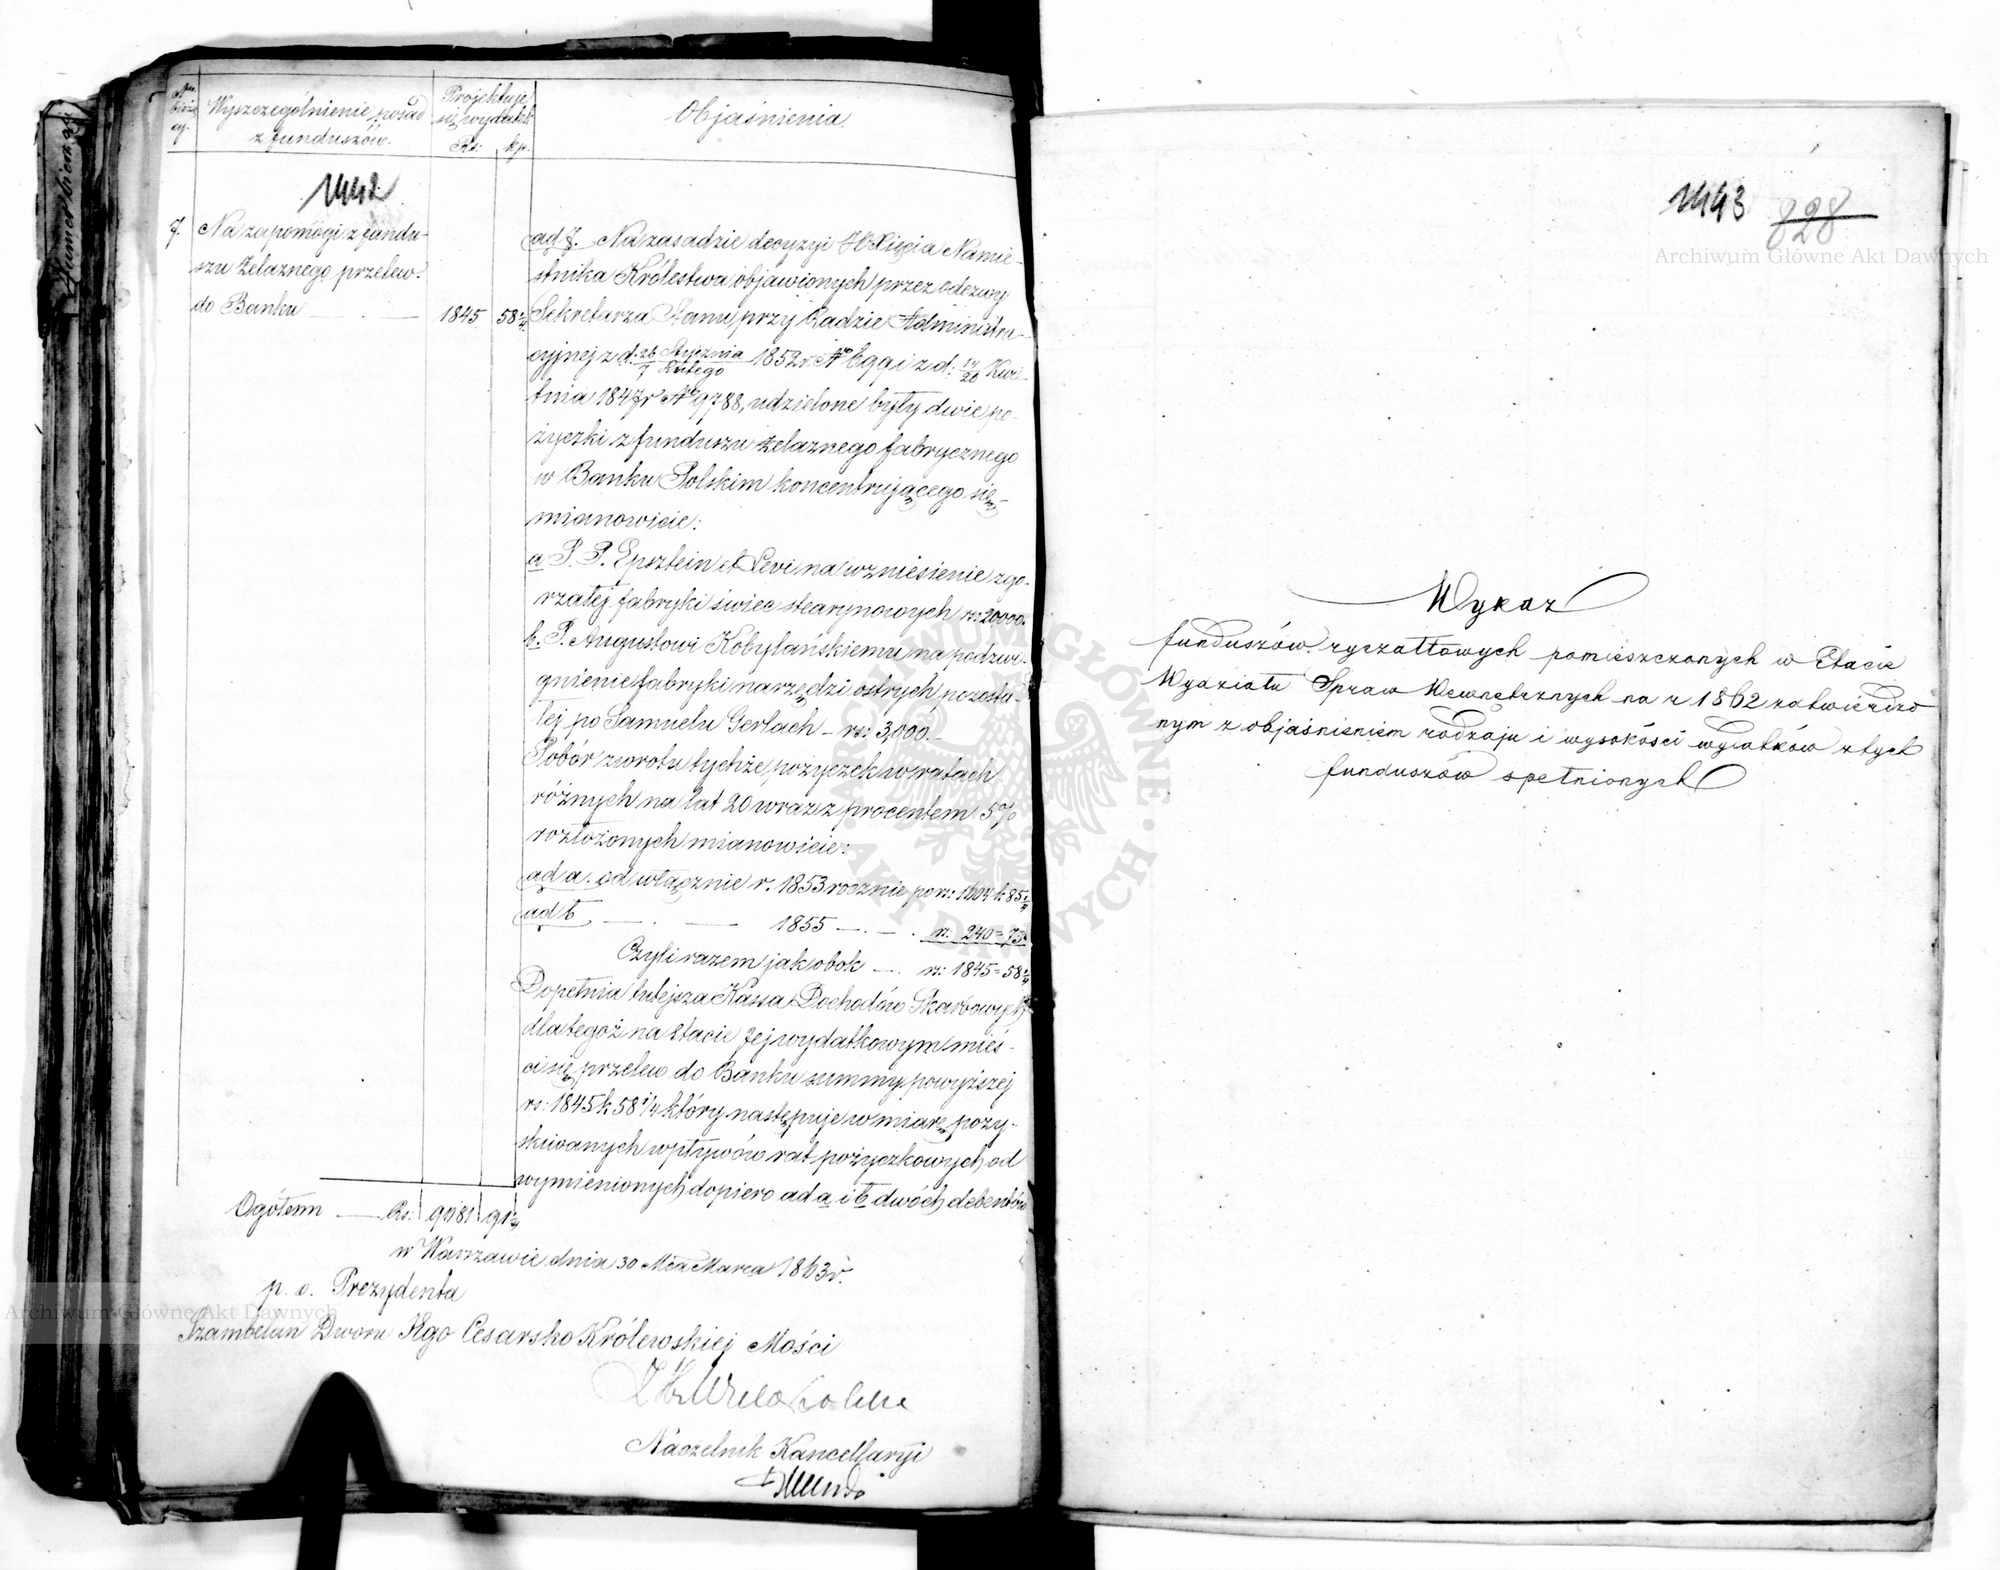 Wyszczególnienie posad
z funduszów.
Projektuje
się wydatek
Rs: kp.
Objaśnienia.
1442
7. Na zapomogi z fundu-
szu żelaznego przelew.
do Banku 1845 58 1/4
ad 7. Na zasadzie decyzyi JO Xięcia Namie-
stnika Królestwa objawionych przez odezwy
Sekretarza Stanu przy Radzie Administra-
cyjnej z d. 26 Stycznia/7 Lutego 1852 r. No i z d. 14/26 Kwie-
tnia 1847 r No 9788, udzielone były dwie po-
życzki z funduszu żelaznego fabrycznego
w Banku Polskim koncentrującego się
mianowicie:
a P. P. Epsztein et Levi na wzniesienie zgo-
rzałej fabryki świec stearynowych rs: 20000.
b. P. Augustowi Kobylańskiemu na podzwi-
gnienie fabryki narzędzi ostrych pozosta-
łej po Samuelu Gerlach – rs: 3,000. –
Pobór zwrotu tychże pożyczek w ratach
różnych na lat 20 wraz z procentem 5%
rozłożonych mianowicie:
ad a. od włącznie r. 1853 rocznie po rs: 1604 k 85 1/4
ad b 1855 rs: 240 = 73
Czyli razem jak obok — rs: 1845 = 58 1/4
Dopełnia tutejsza Kassa Dochodów Skarbowych
dla tegoż na etacie Jej wydatkowym mieś-
ci się przelew do Banku summy powyższej
rs: 1845 k 58 1/4 który następuje w miarę pozy-
skiwanych wpływów rat pożyczkowych od
wymienionych dopiero ad a i b dwóch debentów
Ogółem — Rs:
w Warszawie dnia 30 Mca Marca 1863 r.
p. o. Prezydenta
Szambelan Dworu Jego Cesarsko Królewskiej Mości
Naczelnik Kancellaryi
1443 828
Wykaz
funduszów ryczałtowych pomieszczonych w Etacie
Wydziału Spraw Wewnętrznych na r 1862 zatwierdzo
nym z objaśnieniem rodzaju i wysokości wydatków z tych
funduszów spełnionych
Archiwum Główne Akt Dawnych
Archiwum Główne Akt Dawnych
ARCHIWUM GŁÓWNE · AKT DAWNYCH ·